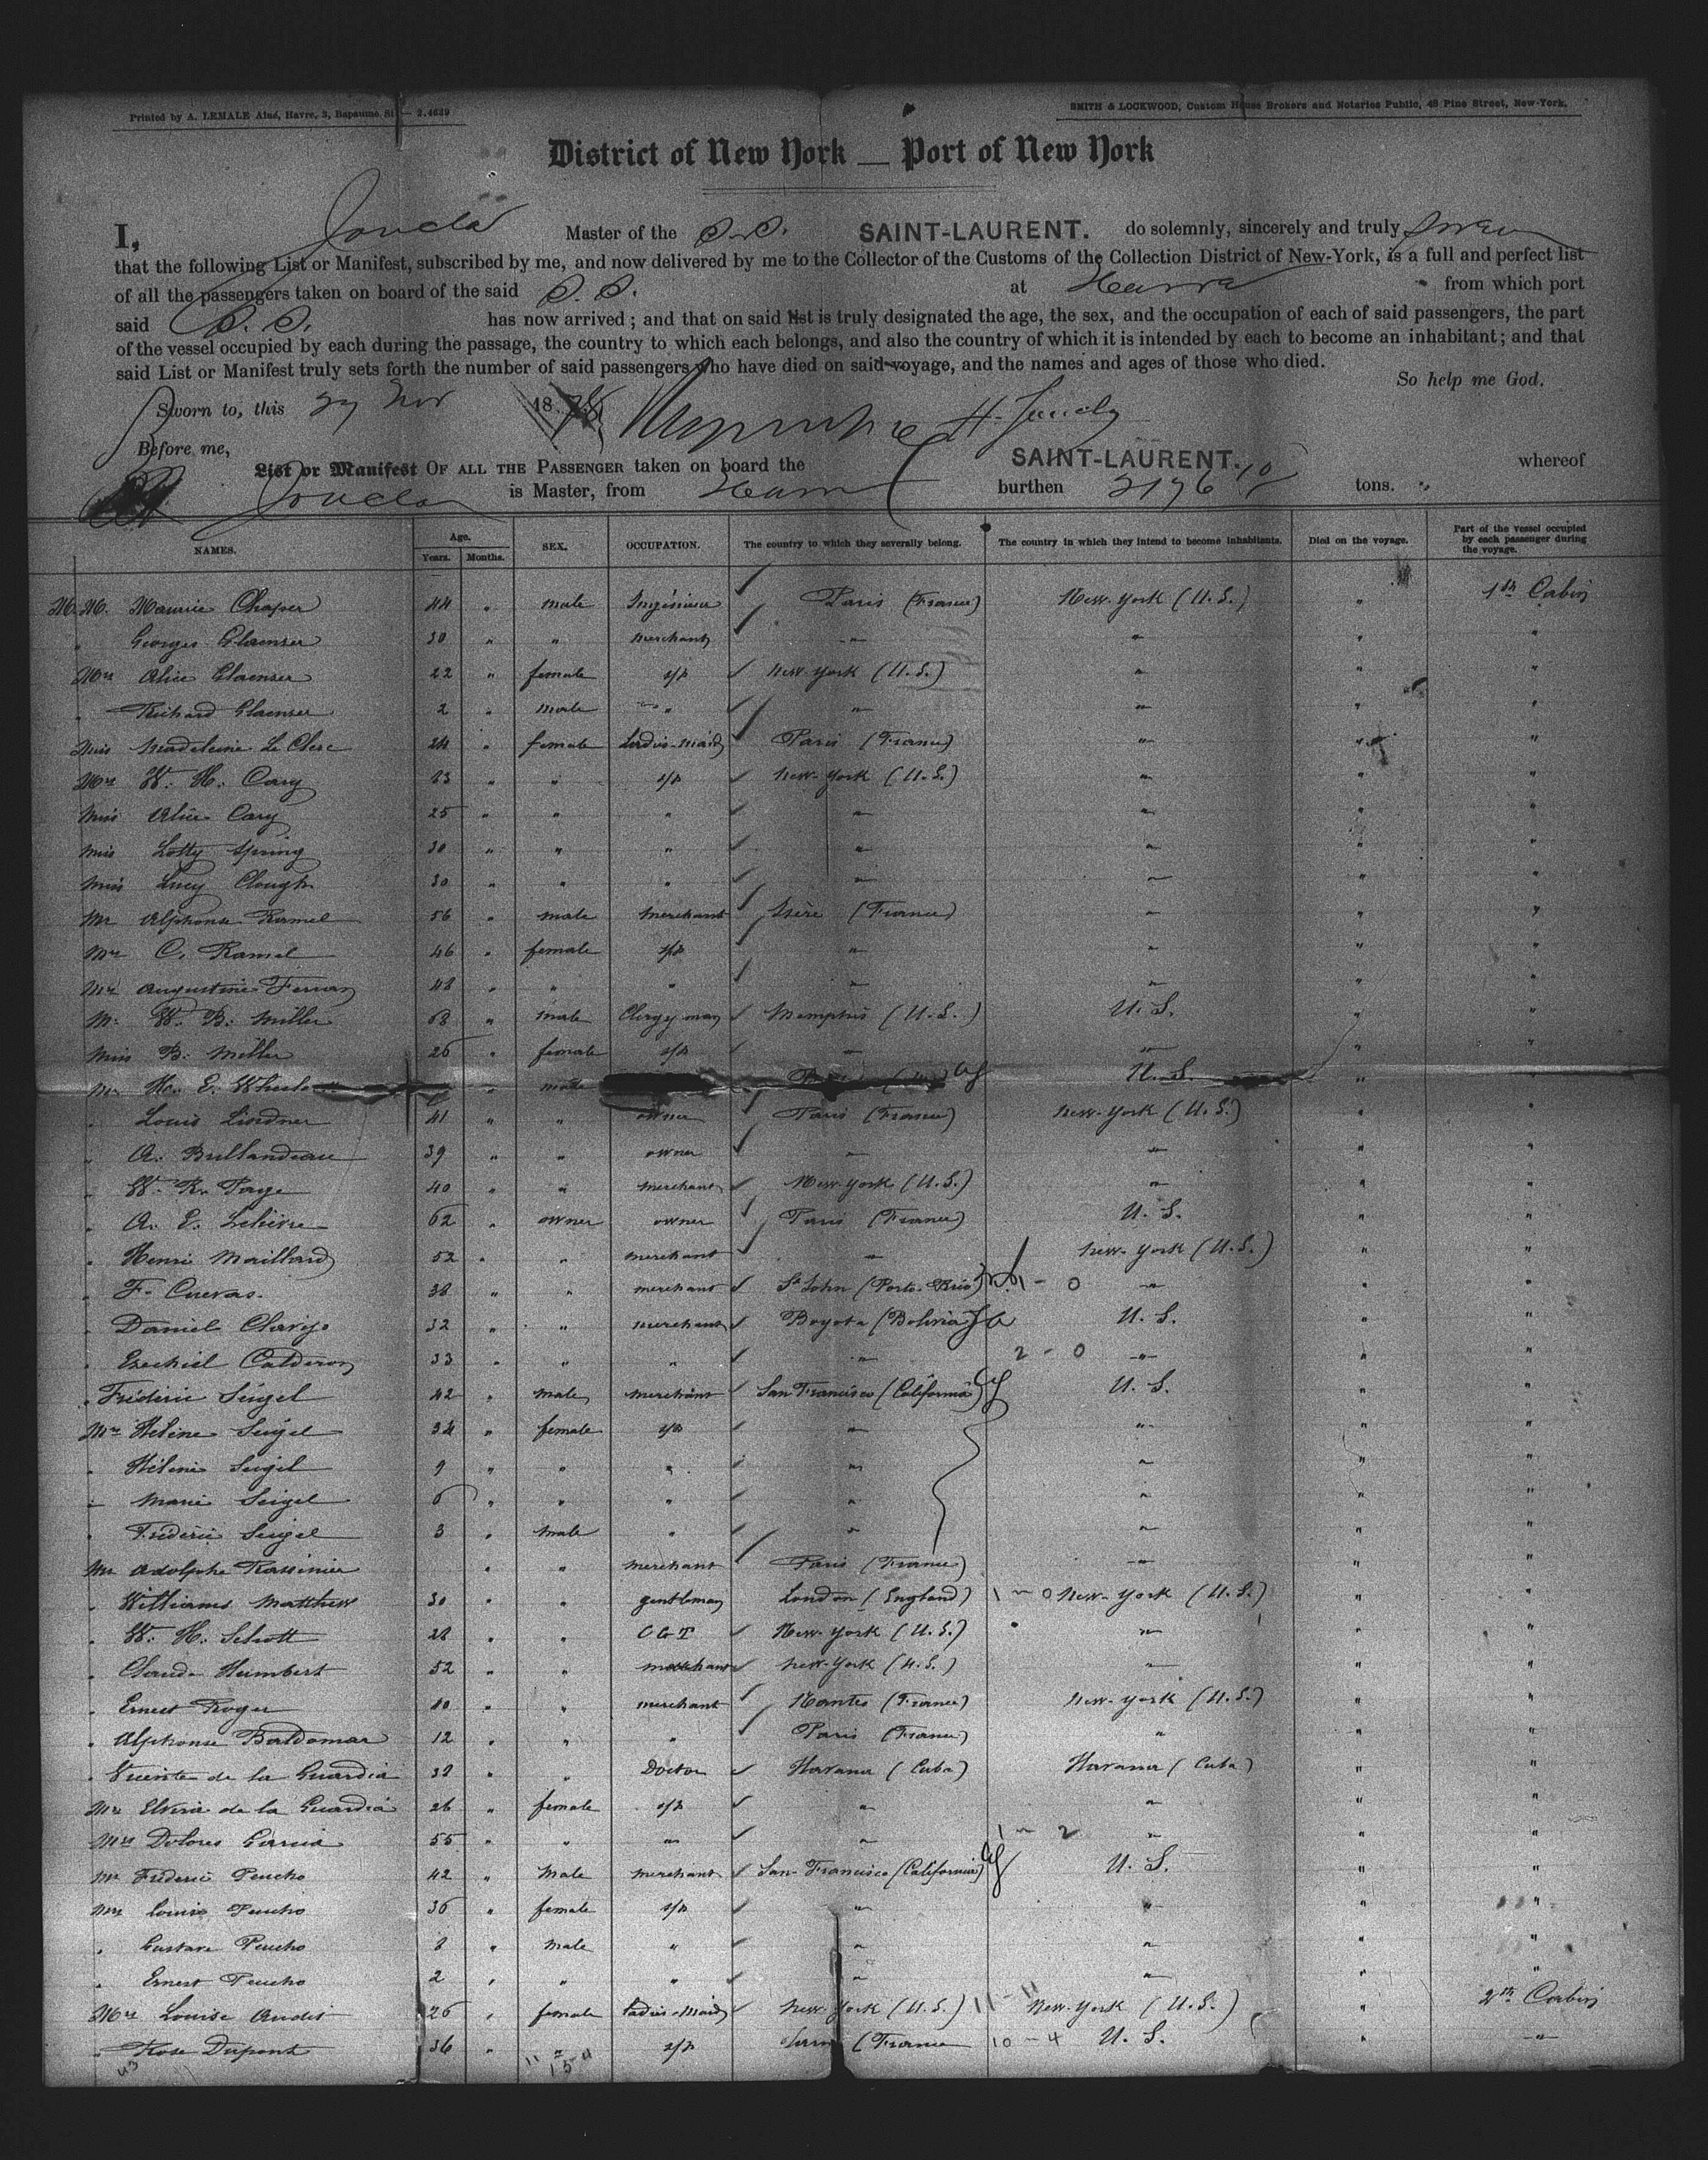 Printed by A. LEMALE Aîné, Havre, 3, Bapaume St — 2.4639
SMITH & LOCKWOOD, Custom House Brokers and Notaries Public, 48 Pine Street, New-York.
District of New York — Port of New York
I, Jouclà Master of the S.S. SAINT-LAURENT. do solemnly, sincerely and truly swear
that the following List or Manifest, subscribed by me, and now delivered by me to the Collector of the Customs of the Collection District of New-York, is a full and perfect list
of all the passengers taken on board of the said S.S. at Havre from which port
said S.S. has now arrived; and that on said list is truly designated the age, the sex, and the occupation of each of said passengers, the part
of the vessel occupied by each during the passage, the country to which each belongs, and also the country of which it is intended by each to become an inhabitant; and that
said List or Manifest truly sets forth the number of said passengers who have died on said voyage, and the names and ages of those who died.
So help me God.
Sworn to, this 27 Nov 18
Before me,
List or Manifest OF ALL THE PASSENGER taken on board the SAINT-LAURENT. whereof
Jouclà is Master, from Havre burthen tons.
NAMES. Age. Years. Months. SEX. OCCUPATION. The country to which they severally belong. The country in which they intend to become inhabitants. Died on the voyage. Part of the vessel occupied by each passenger during the voyage.
M. M. Maurice Chaper 44 " male Ingénieur Paris (France) New-York (U.S.) " 1st Cabin
" Georges Glaenzer 30 " " merchant " " " "
Mrs Alice Glaenzer 22 " female s/p New-York (U.S.) " " "
" Richard Glaenzer 2 " male " " " " "
Miss Madeleine Le Clerc 24 " female ladies-maid Paris (France) " " "
Mrs W. H. Cary " " s/p New-York (U.S.) " " "
Miss Alice Cary 25 " " " " " " "
Miss Lotty Spring 30 " " " " " " "
Miss Lucy Clough 30 " " " " " " "
Mr Alphonse Ramel 56 " male merchant Isère (France) " " "
Mrs C. Ramel 46 " female s/p " " " "
Augustine 48 " " " " " " "
M. W. B. Miller 68 " male Clergyman Memphis (U.S.) U.S. " "
Miss B. Miller 26 " female s/p " " " "
Mr H. E. " male U.S. " "
" Louis Lindner 41 " " owner Paris (France) New-York (U.S.) " "
" A. 39 " " owner " " " "
" W. R. Page 40 " " merchant New-York (U.S.) " " "
" A. E. Lelièvre 62 " owner owner Paris (France) U.S. " "
" Henri Maillard 52 " " merchant " New-York (U.S.) " "
" F. Cuevas. 38 " " merchant St John (Porto-Rico) 1 - 0 " " "
" Daniel Clavijo 32 " " merchant Bogota (Bolivia) U.S. " "
" Ezechiel Calderon 33 " " " " 2 - 0 " " "
" Fréderic Seigel 42 " male merchant San Francisco (California) U.S. " "
Mrs Hélène Seigel 34 " female s/p " " " "
" Hélène Seigel 9 " " " " " " "
" Marie Seigel 6 " " " " " " "
" Fréderic Seigel 3 " male " " " " "
Mr Adolphe Rassinier " " merchant Paris (France) " " "
" Williams Matthew 30 " " gentleman London (England) 1 - 0 New-York (U.S.) " "
" W. H. Schott 28 " " CGT New-York (U.S.) " " "
" Claude Humbert 52 " " merchant New-York (U.S.) " " "
" Ernest Roger " " merchant Nantes (France) New-York (U.S.) " "
" Alphonse Baldomar 12 " " " Paris (France) " " "
" de la Guardia 38 " " Doctor Havana (Cuba) Havana (Cuba) " "
Mrs Elvira de la Guardia 26 " female s/p " " " "
Mrs Dolores Garcia 55 " " " " 1 - 2 " " "
Mr Fréderic Peucho 42 " Male merchant San-Francisco (California) U.S. " "
Mrs Louise Peucho 36 " female s/p " " " "
" Gustave Peucho 8 " Male " " " " "
" Ernest Peucho 2 " " " " " " "
Mrs Louise Audet 26 " female ladies-maid New-York (U.S.) 11 - 11 New-York (U.S.) " 2nd Cabin
" Rose Dupont 36 " " s/p (France 10 - 4 U.S. " "
43